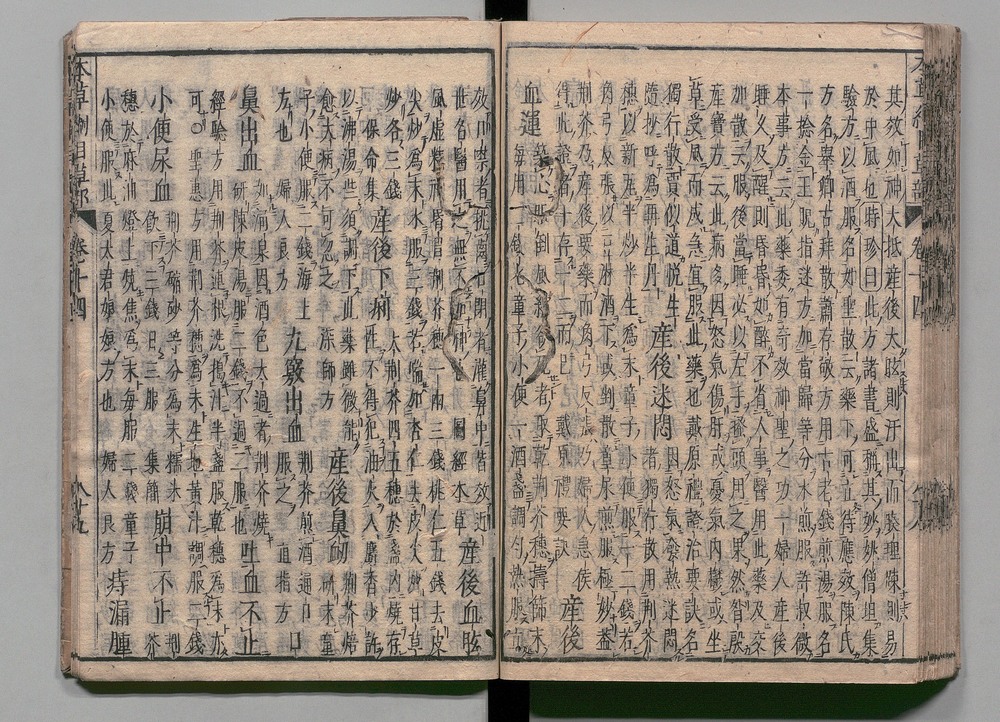 其效如神大抵產後大眩則汗出而腠理疎則易
於中風也時珍曰此方諸書盛稱其妙姚僧坦集
驗方以酒服名如聖散云藥下可立待應效陳氏
方名舉卿古拜散蕭存敬方用古老錢煎湯服名
一捻金王貺指迷方加當歸等分水煎服許叔微
本事方云此藥委有奇效神聖之功一婦人產後
睡久及醒則昏昏如醉不省人事醫用此藥及交
加散云服後當睡必以左手搔頭用之果然昝殷
產寶方云此病多因怒氣傷肝或憂氣內鬱或坐
草受風而成急宜服此藥也戴原禮證治要訣名
獨行散賈似道悅生隨抄呼為再生丹
產後迷悶 因怒氣發熱迷悶者獨行散用荊芥
穗以新瓦半炒半生為末童子小便服一二錢若
角弓反張以豆淋酒下或剉散童尿煎服極妙蓋
荊芥乃產後要藥而角弓反張乃婦人急候
得此證者十存一二而已 戴原禮要訣 產後
血運 築心眼倒風縮欲死者取乾荊芥穗擣篩末
每用二錢匕童子小便一酒盞調勻熱服立
效口噤者挑齒口閉者灌鼻中皆效近
世名醫用之無不如神也 圖經本草 產後血眩
風虛精神昏冒荊芥穗一兩三錢桃仁五錢去皮
尖炒為末水服三錢若喘加杏仁去皮尖炒甘草
炒各三錢 保命集 產後下痢 大荊芥四五穗於盞內燒存
性不得犯油火入麝香少許
以沸湯些須調下此藥雖微能
愈大病不可忽之 產後鼻衄 荊芥焙研末童
子小便服二錢海上方也 婦人良方 九竅出血 荊芥煎酒通口
服之 直指方 口
鼻出血 如涌泉因酒色太過者荊芥燒
研陳皮湯服二錢不過二服也 吐血不止
經驗方用荊芥連根洗搗汁半盞服乾穗為末亦
可○聖惠方用荊芥穗為末生地黃汁調服二錢
小便尿血 荊芥縮砂等分為末糯米
飲下三錢日三服 集簡 崩中不止 荊芥
穗於麻油燈上燒焦為末每服二錢童子
小便服此夏太君娘娘方也 婦人良方 痔漏腫